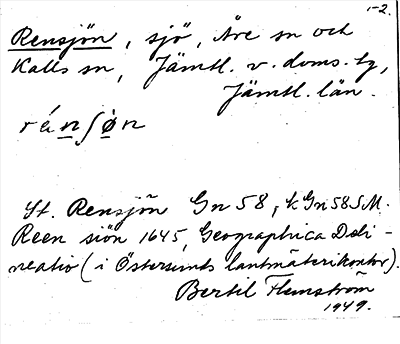 1-2.
Rensjön, sjö, Åre sn och
Kalls sn, Jämtl. v. doms. tg,
Jämtl. län.
rénʃòn
St. Rensjön Gn 58, k Gn 58 SM.
Reen siön 1645, Geographica Deli-
neatio (i Östersunds lantmäterikontor).
Bertil Flemström
1949.